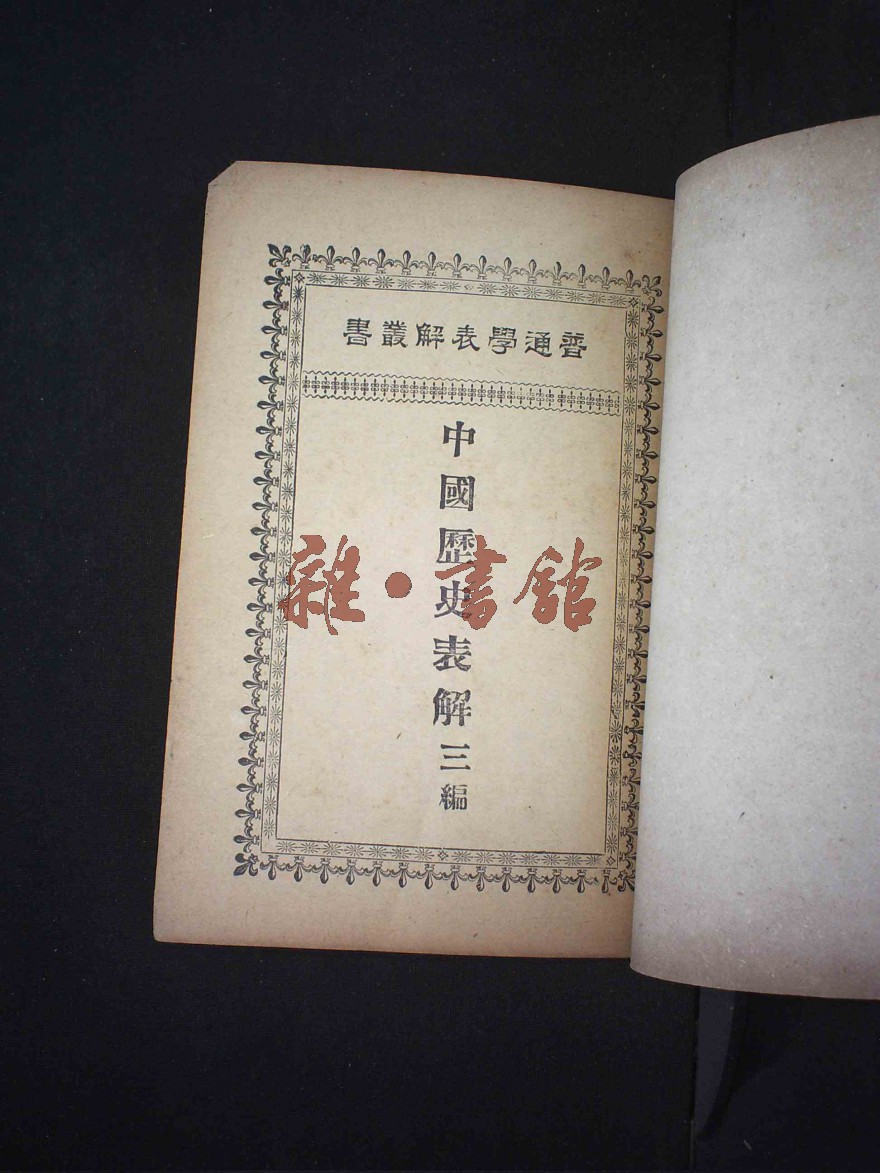 普通學表解叢書
中國歷史表解三編
雜·書館